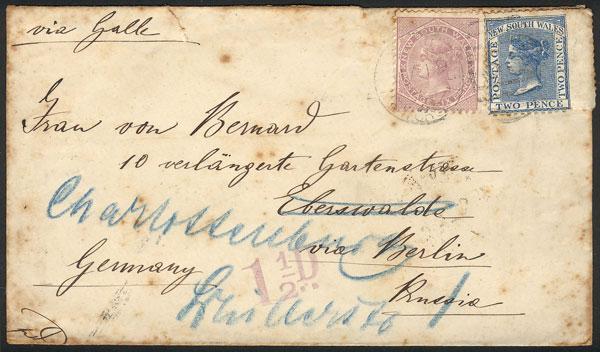 via Galle
NEW SOUTH WALES
POSTAGE
NEW SOUTH WALES
POSTAGE
TWO PENCE
TWO PENCE
Frau von Bernard
10 verlängerte Gartenstrasse
Eberswalde
Charlottenburg
via Berlin
Germany
1 1/2 D
Russia